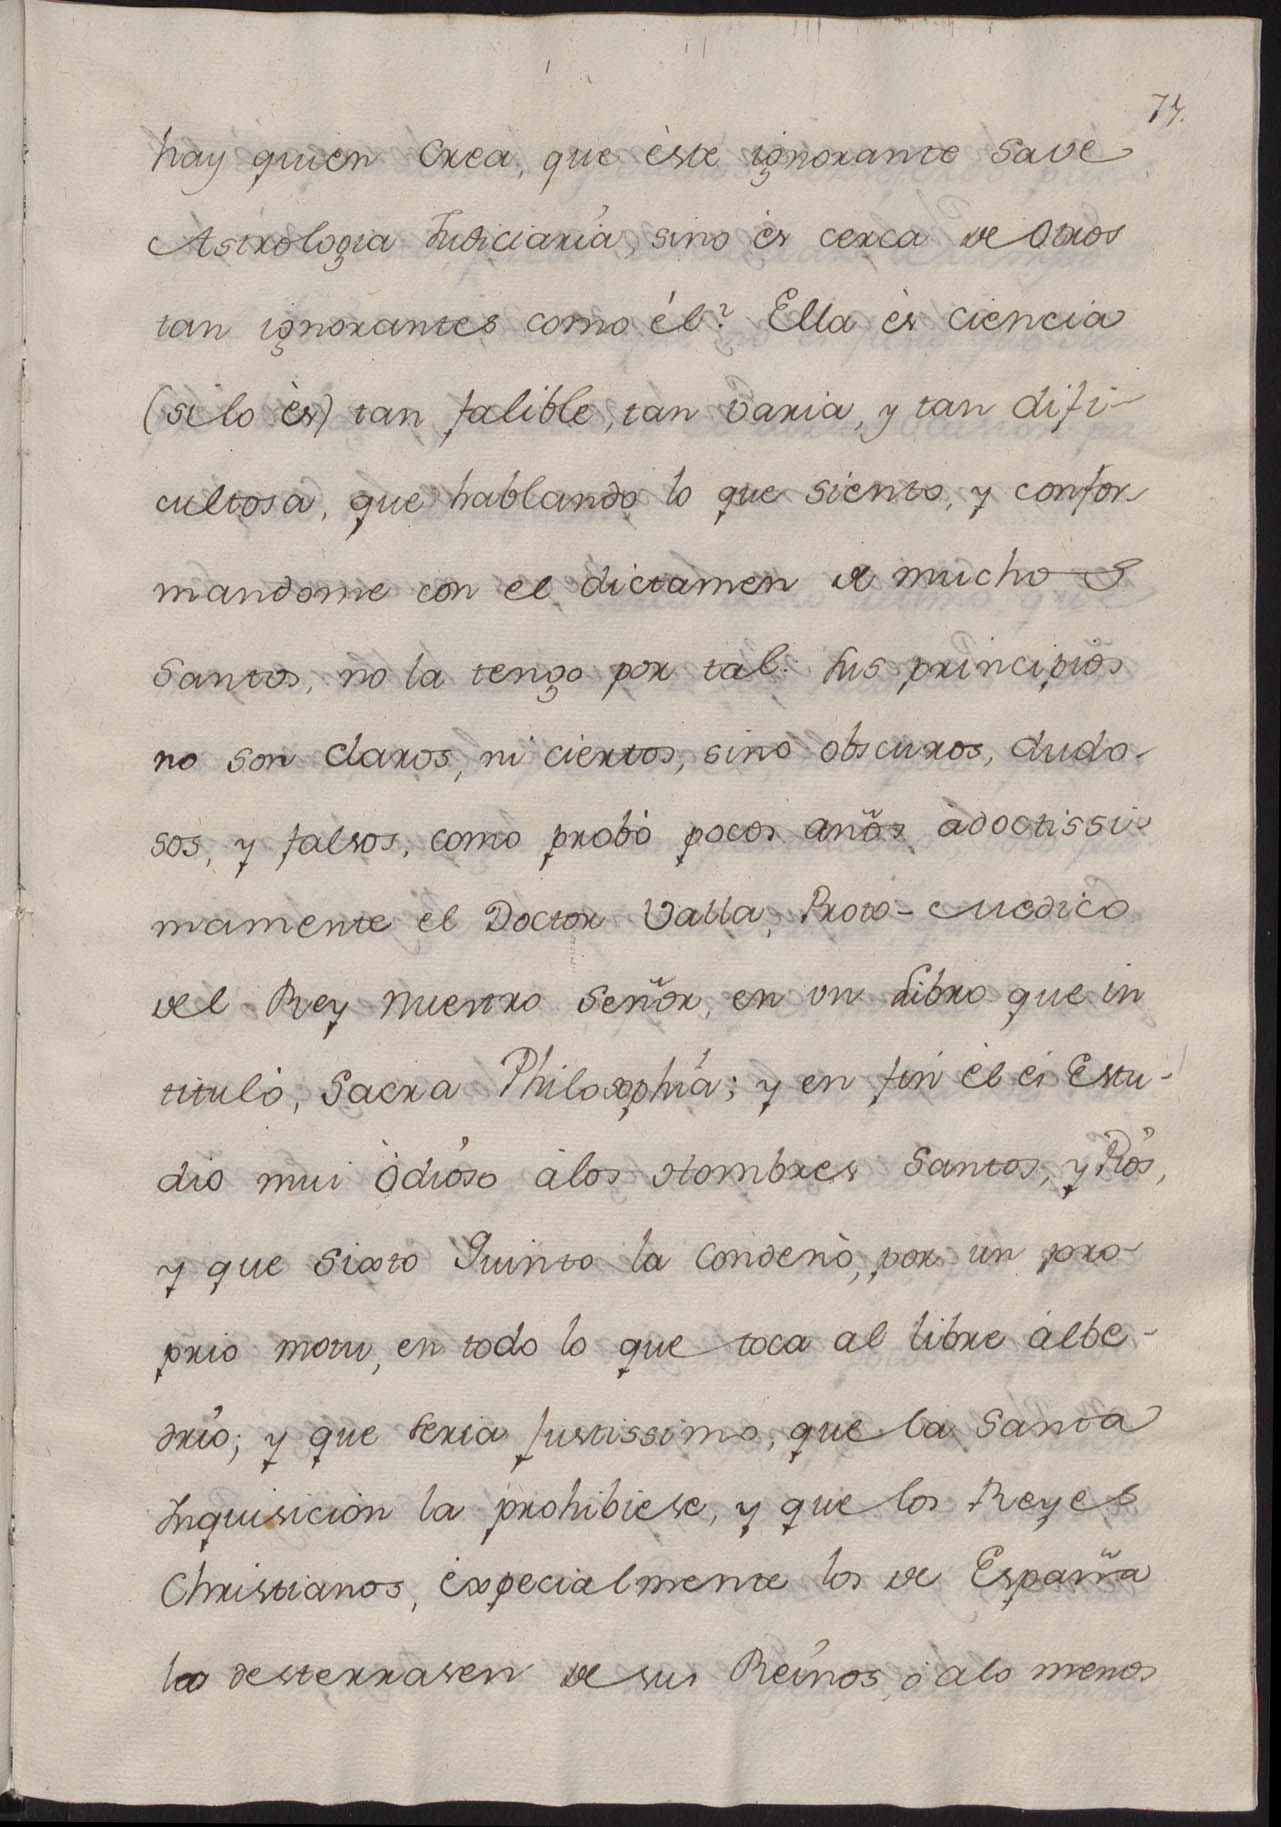 74.
hay quien Crea, que èste ignorante save
Astrologia Judiciaria, sino ès cerca de otros
tan ignorantes como él? Ella ès ciencia
(si lo ès) tan falible, tan varia, y tan difi-
cultosa, que hablando lo que siento, y confor-
mandome con el dictamen de muchos
Santos, no la tengo por tal. Sus principios
no son claros, ni ciertos, sino obscuros, dudo-
sos, y falsos, como probò pocos años à doctissi-
mamente el Doctor Valla, Proto-Medico
del Rey nuestro Señor, en un Libro que in
titulò, Sacra Philosophia; y en fin èl ès Estu-
dio mui òdioso àlos Hombres Santos, y Pios,
y que Sixto Quinto la condenò, por un pro-
prio motu, en todo lo que toca al libre àlbe-
drio; y que seria justissimo, que la Santa
Inquisicion la prohibiese, y que los Reyes
Christianos, èxpecialmente los de España
la desterrasen de sus Reinos, ò alo menos